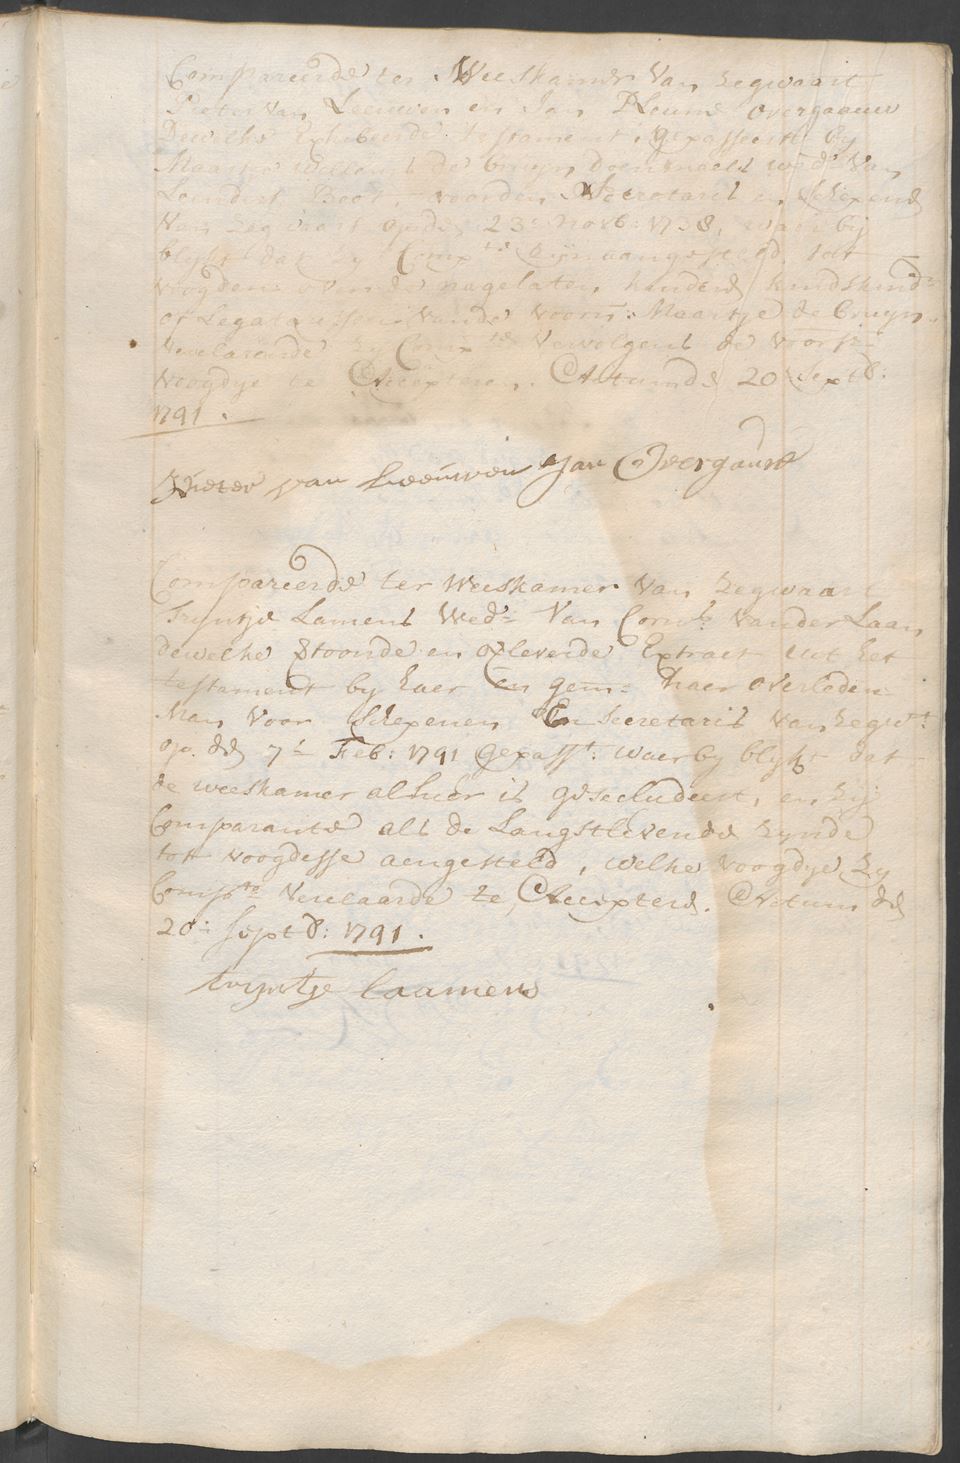 Compareerde ter Weeskamer Van Zegwaart
Pieter Van Leeuwen en Jan Overgaauw
Dewelke Exhibeerde testament, gepasseert by
Maartje Willems de bruyn doenmaels wed:e Van
Leendert Boot, voorden Secretaris en Schepens
Van Zegwaart opde 23: Novb: 1738, waer by
blykt dat Zy Comp:ten Zijn aangesteld tot
voogden van de nagelaten kinders kindskind:n
of Legatarissen vande voorn: Maartje de bruyn.
Verclaerde Zy Comp:ten Vervolgens de voorsz:
voogdye te Accepteren. Actum de 20: Sept8:
1791.
Pieter van Leeuwen Jan Overgauw
Compareerde ter Weeskamer Van Zegwaart
Tryntje Lamens Wed:e Van Corn:s Vander Laan
dewelke Etoonde en Overleverde Extract uit het
testament by haer en gem: haer overleden
Man Voor Schepenen En Secretaris Van Zegw:t
op. dd 7:e Feb: 1791 gepass:t: waer by blykt dat
de weeskamer alhier is gesecludeert, en Zy
Comparante als de Langstlevende Zynde
tot voogdesse aengesteld, welke voogdye Zy
Comp:te Verclaarde te Accepteré. Actum dd
20: Sept8: 1791.
tryntje laamens